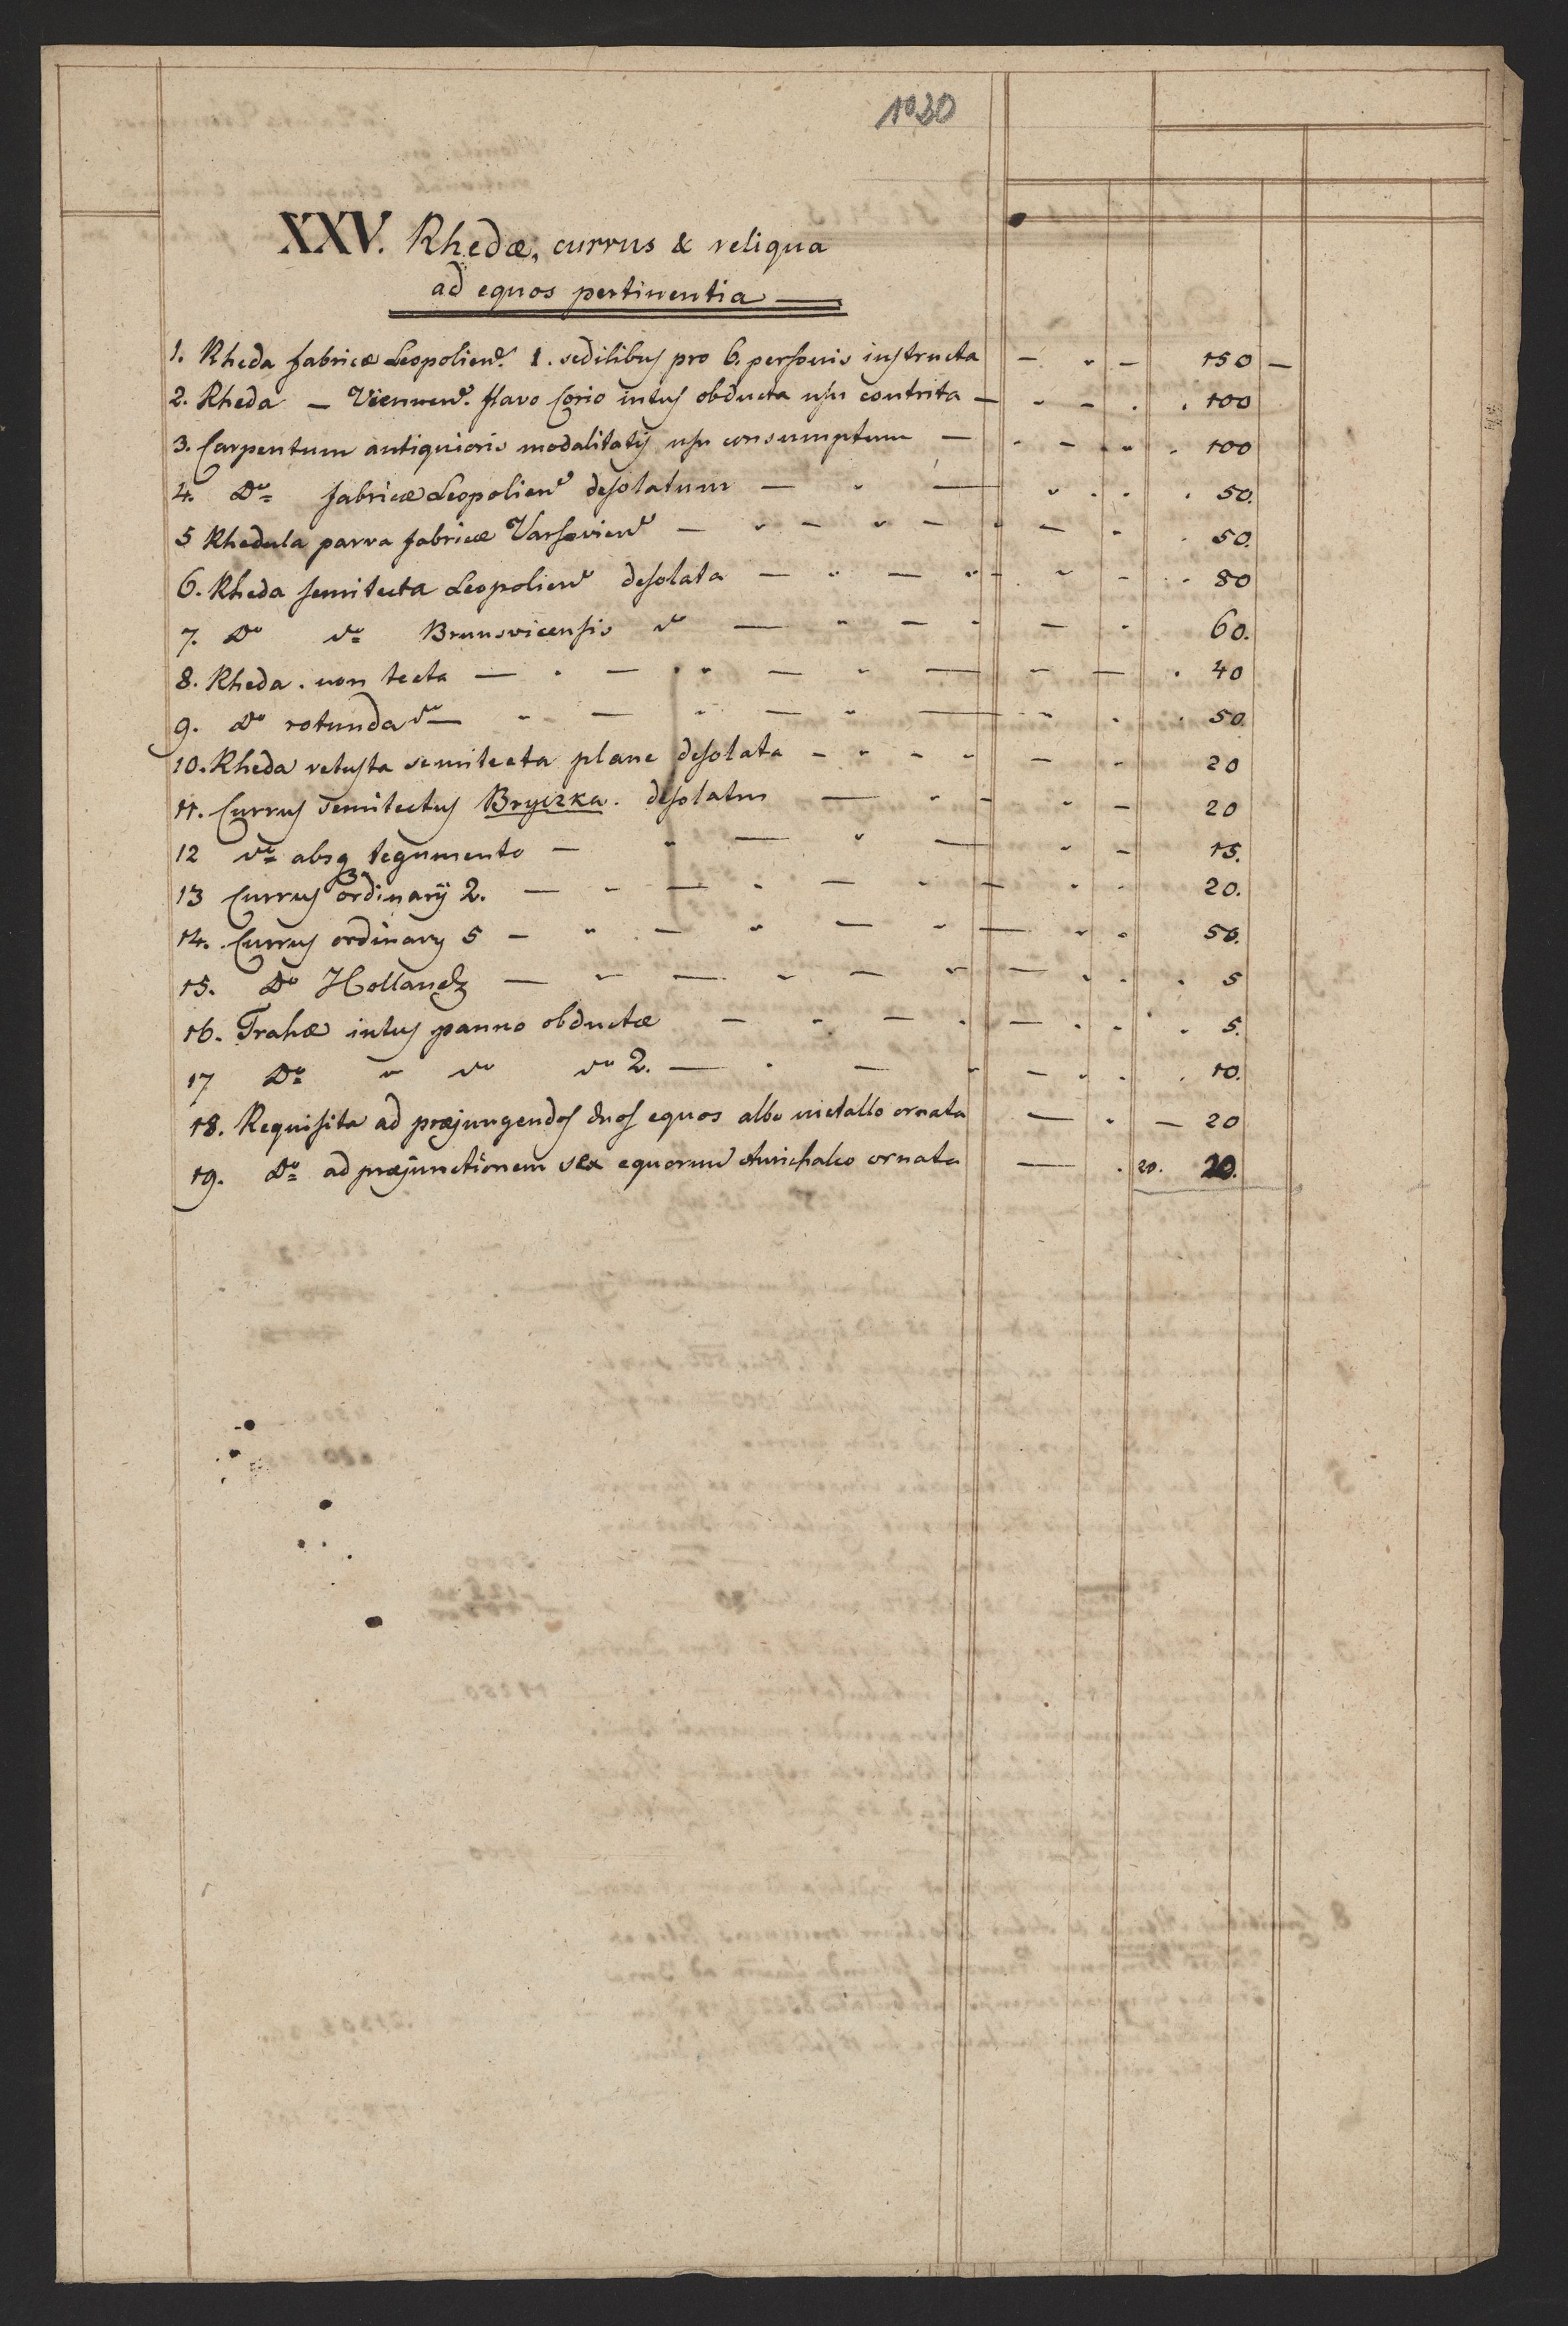 1030
XXV. Rhedæ, currus & reliqua
ad equos pertinentia —
1. Rheda fabricæ Leopolien. 1. sedilibus pro 6. personis instructa — " — 150 —
2. Rheda — Viennen. flavo Corio intus obducta usu contrita — " — . . 100
3. Carpentum antiquioris modalitatis usu consumptum — . — . " . 100
4. Do fabricæ Leopolien desolatum — " — " . . . 50.
5 Rhedula parva fabricæ Varsovien — " — " — " — . . 50.
6. Rheda semitecta Leopolien desolata — " — " - " - . . 80
7. Do do Brunsvicensis do — " — " — . 60.
8. Rheda . non tecta — . — . " — " — - — . 40
9. Do rotunda do — " — " — " — " . . 50
10. Rheda vetusta semitecta plane desolata - " - " — - 20
11. Currus semitectus Bryczka. desolatus — " - " — 20
12 do absq tegumento — " — " — " - 15.
13 Currus ordinarij 2. — " — . — " — . . 20.
14. Currus ordinary 5 — " — " — " — " . 50.
15. Do Hollandz — " — " — " — . . . 5
16. Trahæ intus panno obductæ — . — . — . . . 5.
17 Do " do do 2. — . — " — . . . 10.
18. Requisita ad præjungendos duos equos albo metallo ornata — . — 20
19. Do ad præjunctionem sex equorum Aurichalco ornata — . 20. 20.